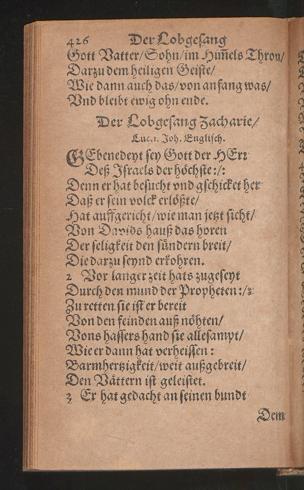 426 Der Lobgesang
Gott Vatter/Sohn/im Him̃els Thron/
Darzu dem heiligen Geiste/
Wie dann auch das/von anfang was/
Vnd bleibt ewig ohn ende.
Der Lobgesang Zacharie/
Luc.1. Joh. Englisch.
GEbenedeyt sey Gott der HErr
Deß Israels der höchste:/:
Denn er hat besucht vnd gschicket her
Daß er sein volck erlößte/
Hat auffgericht/wie man jetzt sicht/
Von Davids hauß das horen
Der seligkeit den sündern breit/
Die darzu seynd erkohren.
2 Vor langer zeit hats zugeseyt
Durch den mund der Propheten:/:
Zu retten sie ist er bereit
Von den feinden auß nöhten/
Vons hassers hand sie allesampt/
Wie er dann hat verheissen:
Barmhertzigkeit/weit außgebreit/
Den Vättern ist geleistet.
3 Er hat gedacht an seinen bundt
Dem